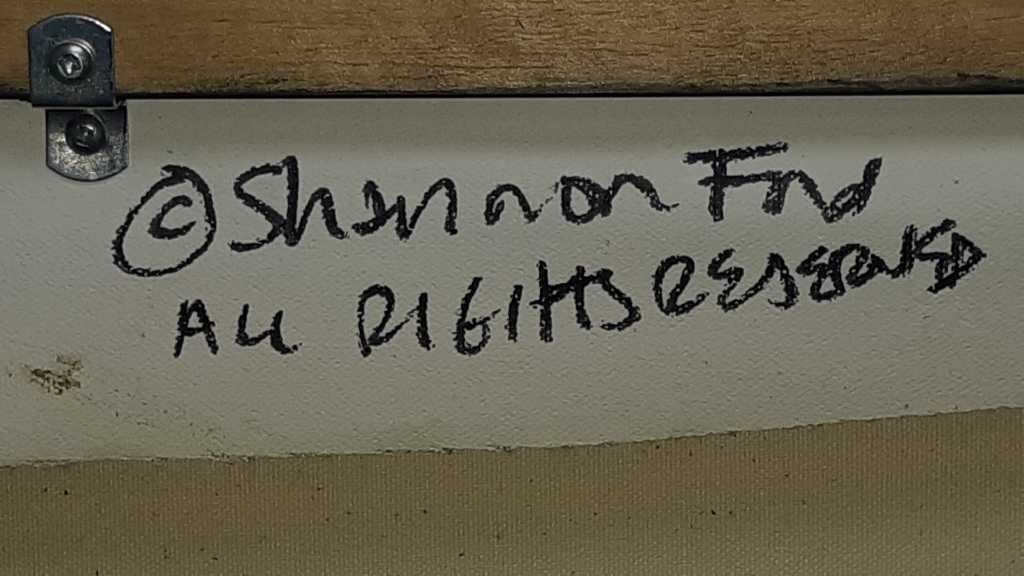 © Shannon Find
ALL RIGHTS RESERVED